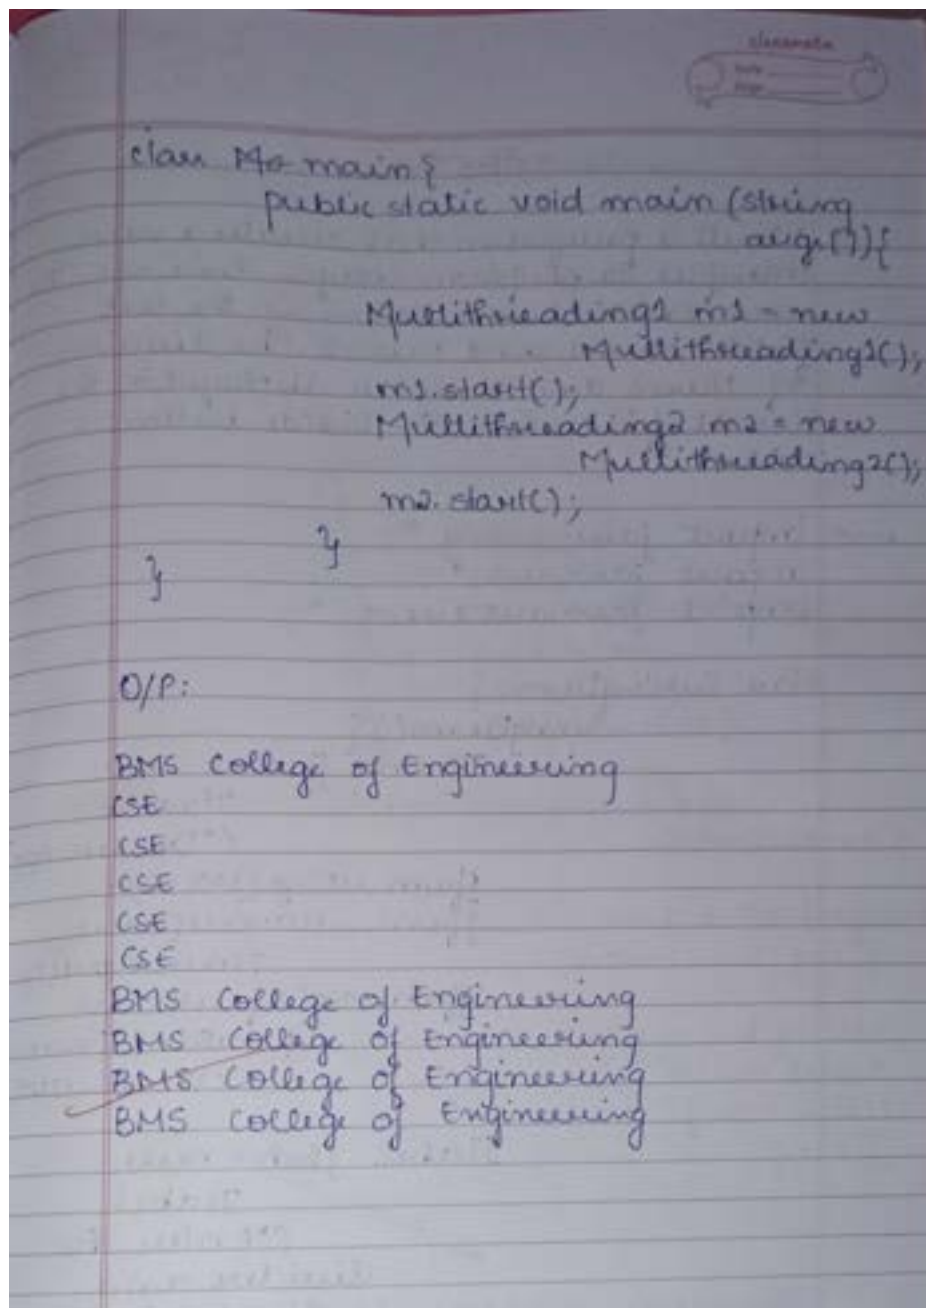 classmate
Date
Page
class Mo main {
public static void main (string
args[]){
Multithreading1 m1 = new
Multithreading1();
m1.start();
Multithreading2 m2 = new
Multithreading2();
m2.start();
}
}
O/P:
BMS College of Engineering
CSE
CSE
CSE
CSE
CSE
BMS College of Engineering
BMS College of Engineering
BMS College of Engineering
BMS College of Engineering